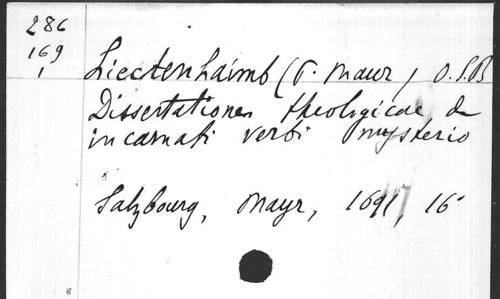 286
169
1
Liectenhaimb (P. Maur) O.S.B
Dissertationes theologicae de
incarnati verbi mysterio
Salzbourg, Mayr, 1691, 16°